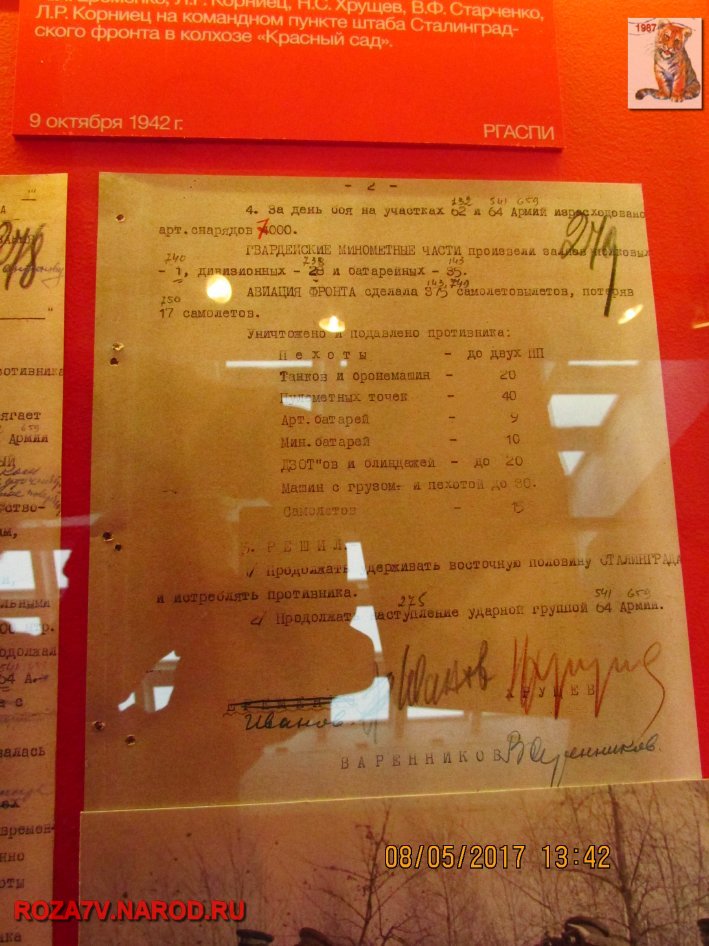 Н.С. Хрущев, В.Ф. Старченко,
Л.Р. Корниец на командном пункте штаба Сталинград-
ского фронта в колхозе «Красный сад».
9 октября 1942 г.
РГАСПИ
1987
- 2 -
132 541 659
4. За день боя на участках 62 и 64 Армий израсходовано
арт.снарядов 7000.
279
278
ГВАРДЕЙСКИЕ МИНОМЕТНЫЕ ЧАСТИ произвели залпов полковых
740 738 143
- 1, дивизионных - 28 и батарейных - 35.
143,749
АВИАЦИЯ ФРОНТА сделала 375 самолетовылетов, потеряв
750
17 самолетов.
Уничтожено и подавлено противника:
Пехоты - до двух ПП
Танков и бронемашин - 20
Пулеметных точек - 40
Арт.батарей - 9
Мин.батарей - 10
ДЗОТ"ов и блиндажей - до 20
Машин с грузом и пехотой до 80.
Самолетов - 15
5. РЕШИЛ:
1/ Продолжать удерживать восточную половину СТАЛИНГРАДА
и истреблять противника.
275 541 659
2/ Продолжать наступление ударной группой 64 Армии.
Иванов Хрущев
ХРУЩЕВ
Иванов.
ВАРЕННИКОВ Вареников.
отивника
ягает
659
Армии
ство-
ым,
ельными
одолжал
64 А.-
а с
валась
времен-
нно
оты
ника
08/05/2017 13:42
ROZA7V.NAROD.RU